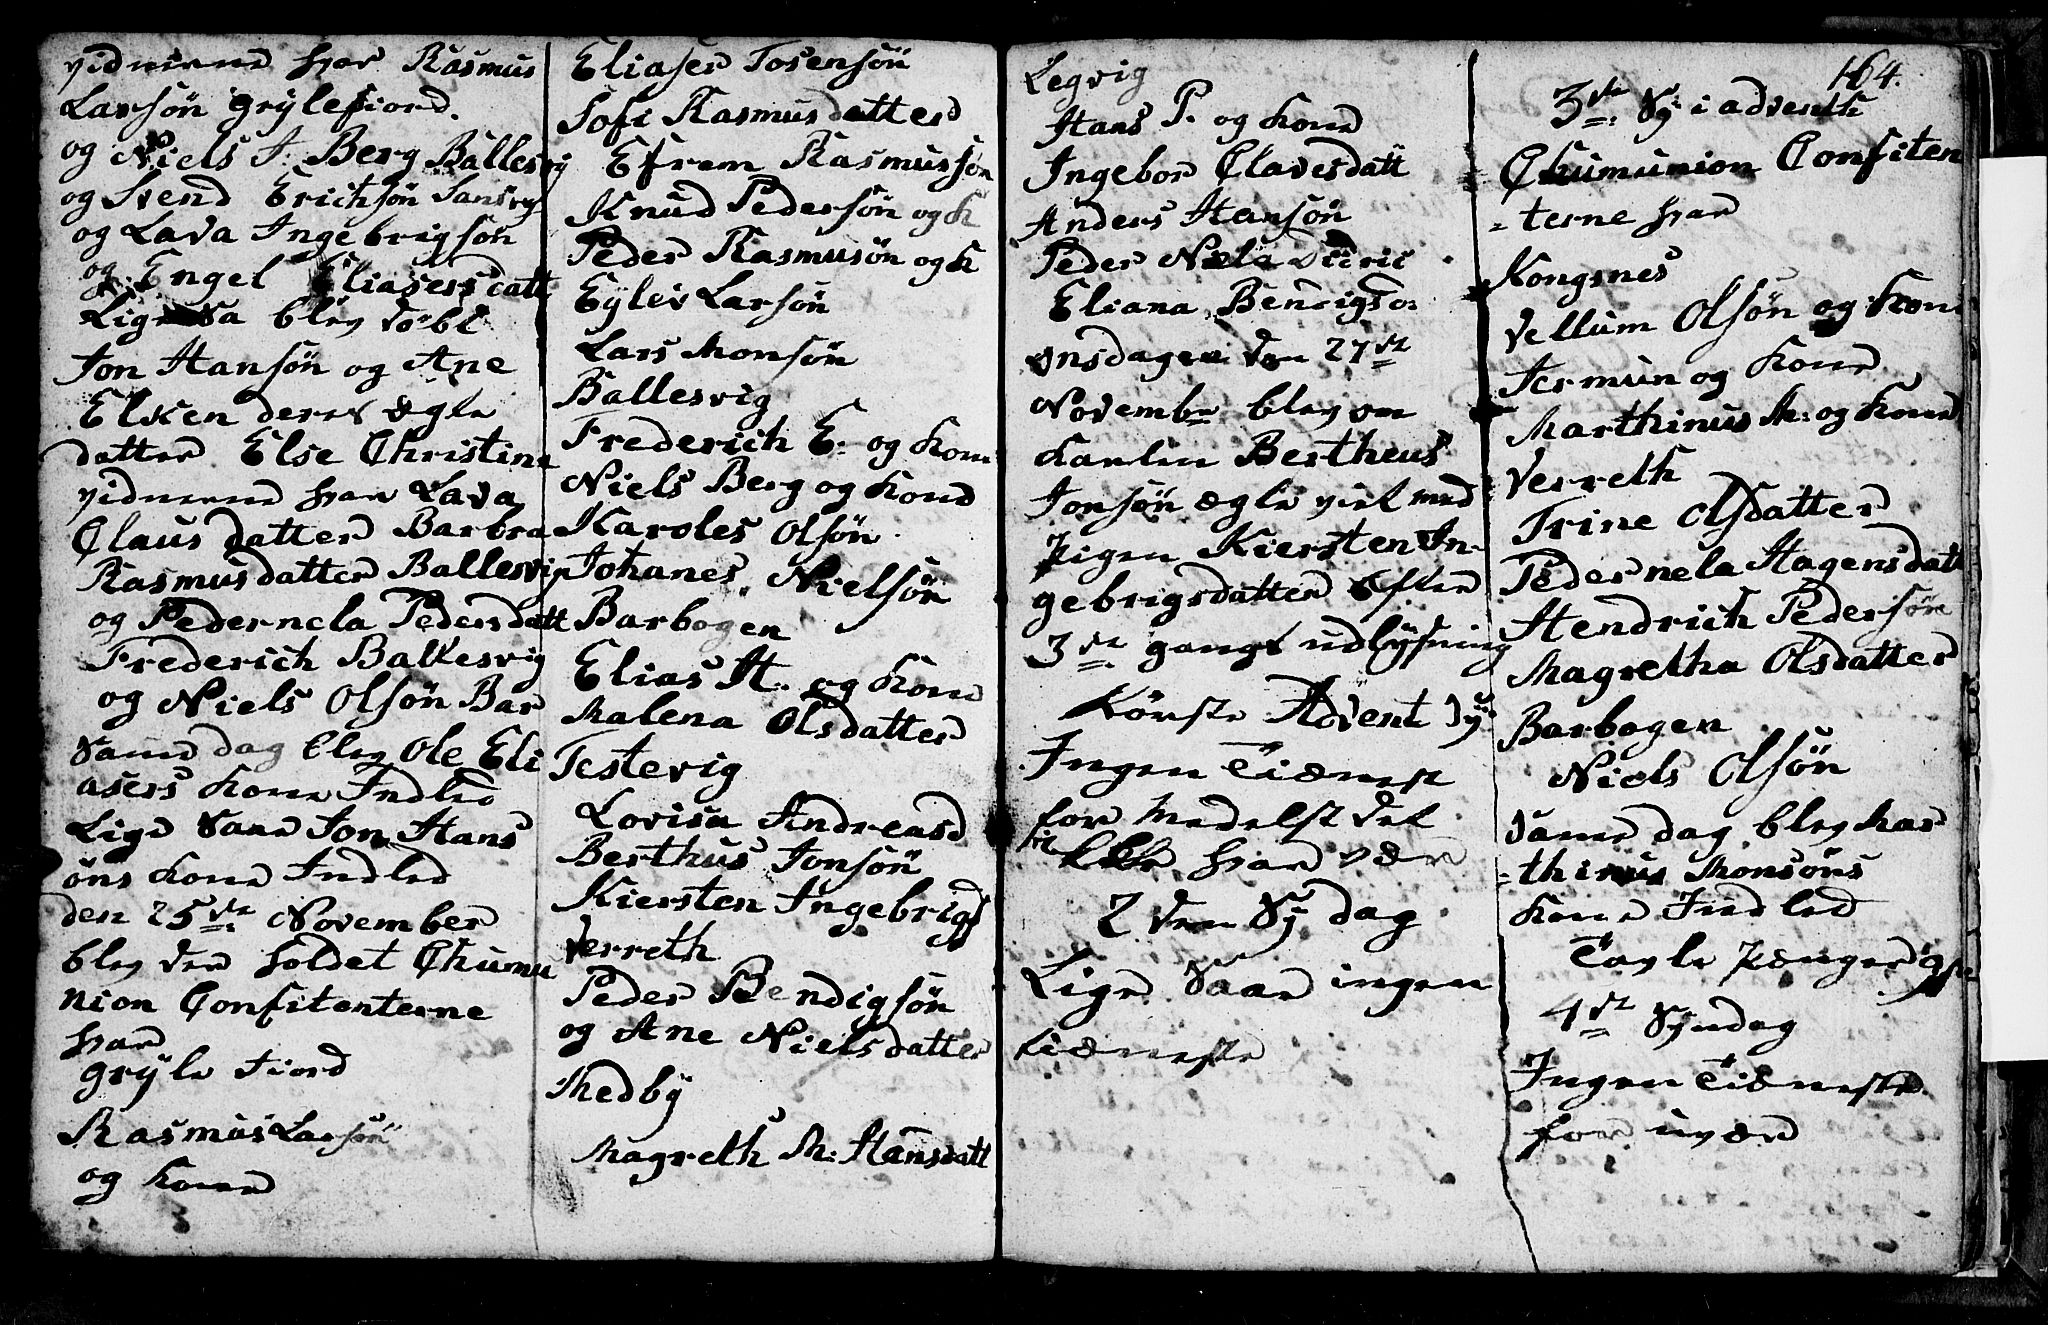 vidnerne hvar Rasmus
Larsøn Grylefiord.
og Niels J: Berg Ballesvig
og Svend Erichsøn Sansvig
og Lava Ingebrigsøn
og Engel Eliasersdatt
Ligesaa blev døbt
Jon Hansøn og Ane
Elken deres ægte
datter Else Christina
vidnerne hvar Lava
Claus datter Barbra
Rasmusdatter Ballesvig
og Pedernela Pedersdatt
Frederich Ballesvig
og Niels Olsøn Bar
Same dag blev Ole Eli
asers Kone Indled
Lige Saae Jon Hans
øns Kone Indled
den 25de November
blev der holdet Chumu
nion Confitenterne
hvar
Gryle Fiord
Rasmus Larsøn
og Kone
Eliaser Tosensøn
Sofi Rasmusdatter
Efram Rasmussøn
Knud Pedersøn og K
Peder Rasmusøn og K
Eylev Larsøn
Lars Monsøn
Ballesvig
Frederich E. og Kone
Niels Berg og Kone
Karoles Olsøn
Johanes Nielsøn
Barbogen
Elias H. og Kone
Malena Olsdatter
Testevig
Lovisa Andreasd
Berthus Jonsøn
Kiersten Ingebrigs
Verreth
Peder Bendigsøn
og Ane Nielsdatter
Medby
Magreth M: Hansdatt
Legvig
Hans P. og Kone
Ingebor Clavesdatt
Anders Hansøn
Peder Niels
Eliana Bendigso
onsdagen den 27de
Novembr blev om
Karlen Bertheus
Jonsøn ægte viet med
Pigen Kiersten In-
gebrigsdatter Efter
3de gangs udlysning
Førster Advent Sy
Ingen Tiæneste
for medelst det
hvar vær
2den Sy dag
Lige Saae ingen
tiæneste
164.
3de Sy: i advent
Chumunion Confiten
-terne hvar
Kongsnes
Vellum Olsøn og Kone
Jermun og Kone
Marthinus M: og Kone
Verreth
Trine Olsdatter
Pedernela Hagensdatt
Hendrich Pedersøn
Magretha Olsdatter
Barbogen
Niels Olsøn
Same dag blev Mar
-thinus Monsøns
Kone Indled
Tavle Pænger
4de Syndag
Ingen Tiæneste
for uvær